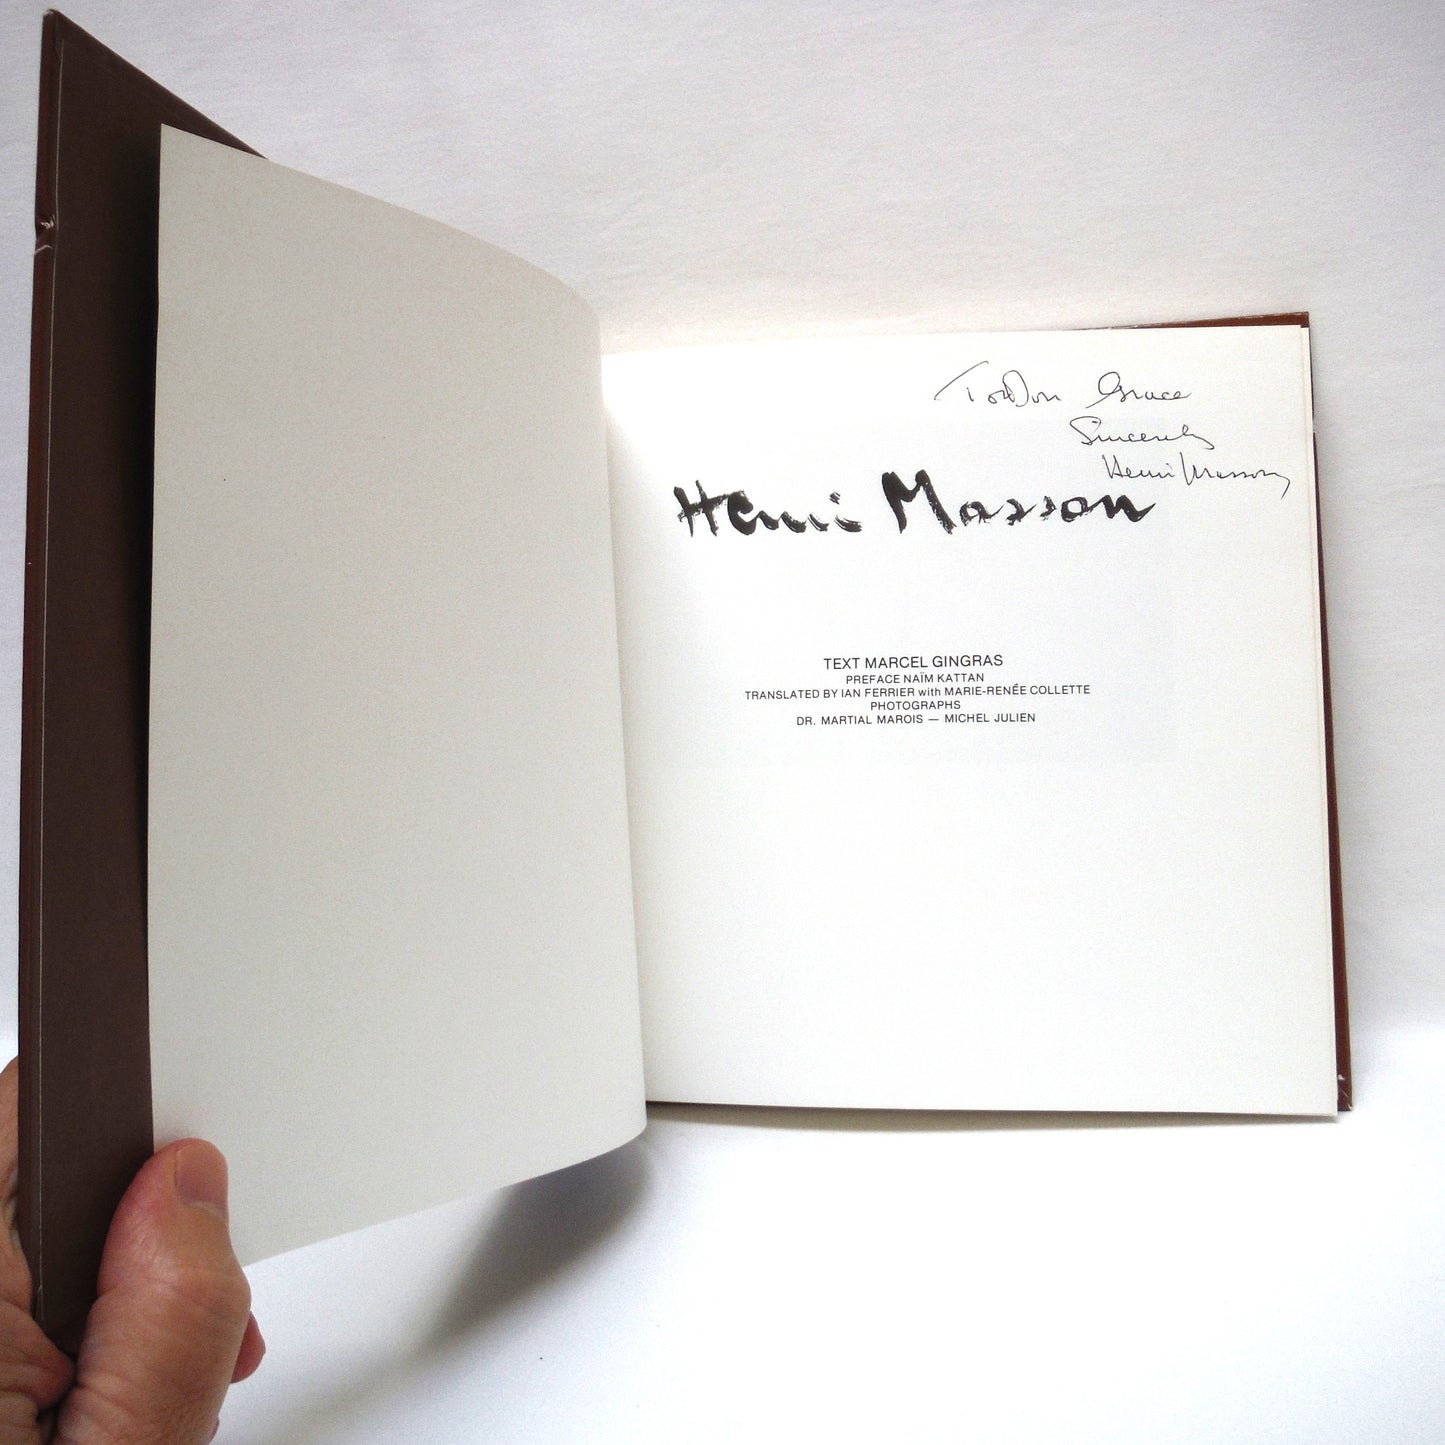 To Don Grace
Sincerely
Henri Masson
Henri Masson
TEXT MARCEL GINGRAS
PREFACE NAÏM KATTAN
TRANSLATED BY IAN FERRIER with MARIE-RENÉE COLLETTE
PHOTOGRAPHS
DR. MARTIAL MAROIS — MICHEL JULIEN